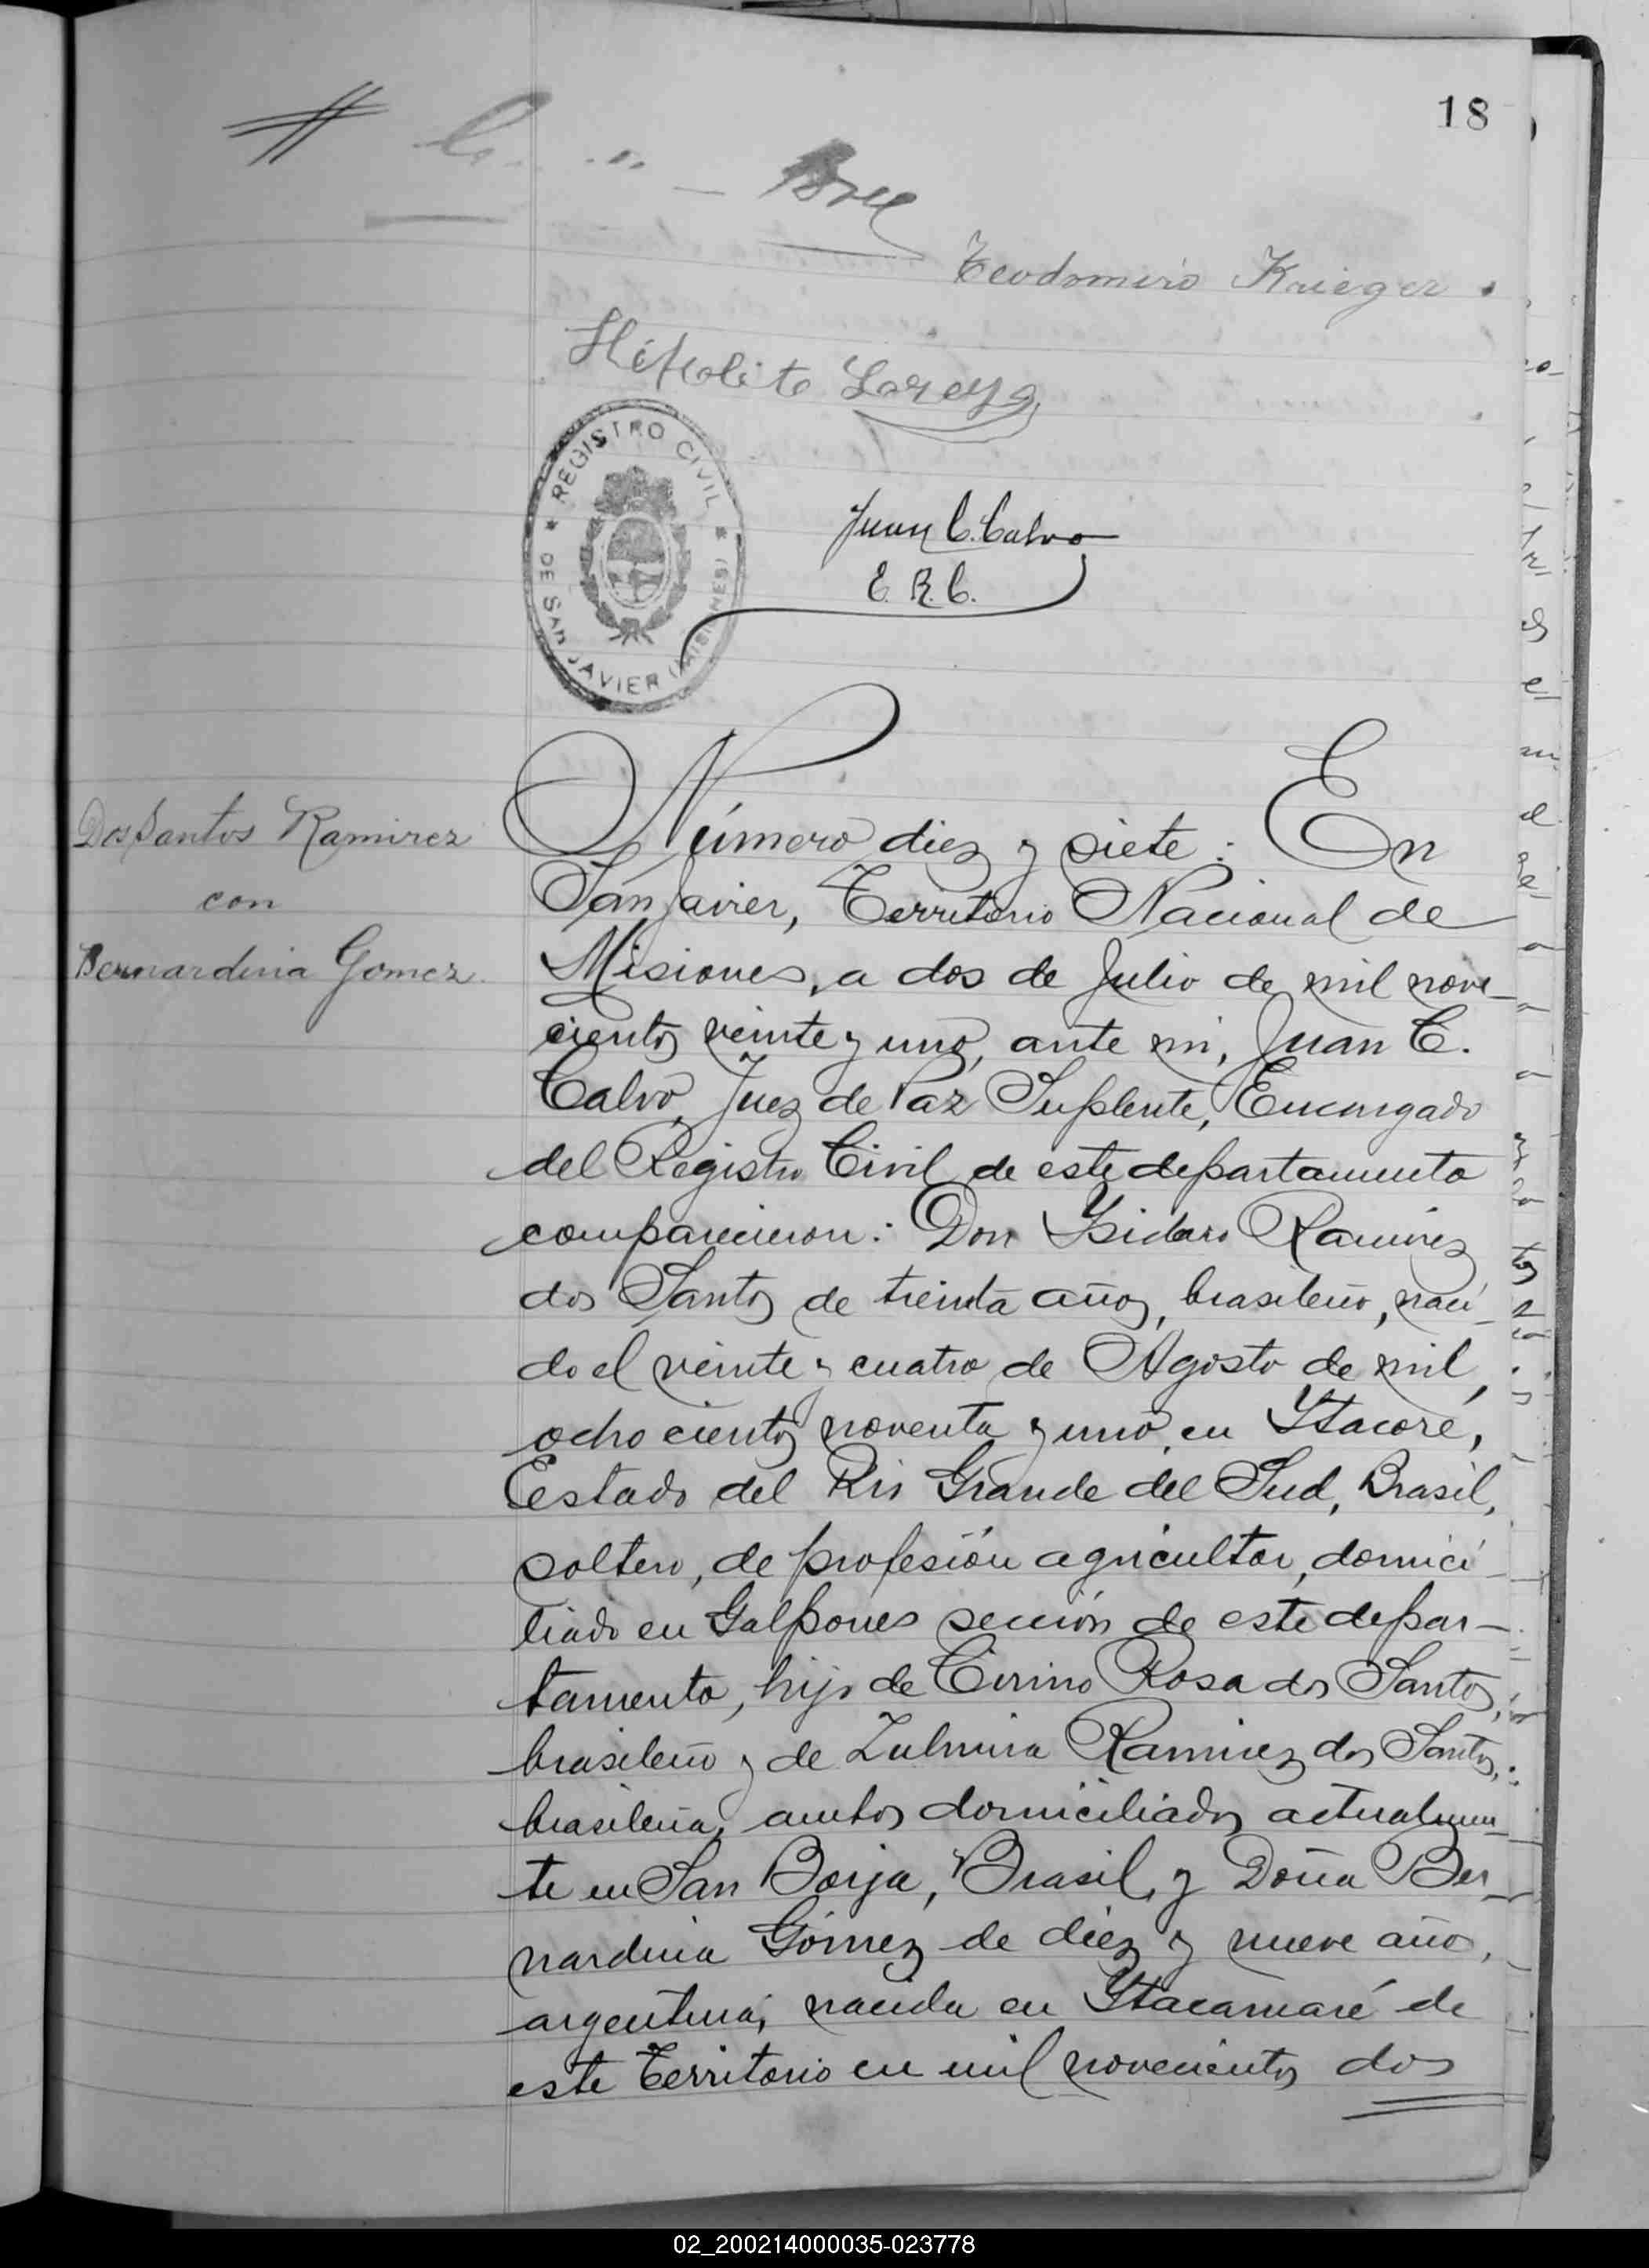 18
Teodomiro Krieger.
Hipolito
REGISTRO CIVIL
DE SAN JAVIER (MISIONES)
Juan C. Calvo
E. R. C.
Dos Santos Ramirez
con
Bernardina Gomez.
Número diez y siete: En
San Javier, Territorio Nacional de
Misiones, a dos de Julio de mil nove-
cientos veinte y uno, ante mi, Juan C.
Calvo, Juez de Paz Suplente, Encargado
del Registro Civil de este departamento
comparecieron: Don Ysidoro Ramirez
dos Santos de treinta años, brasileño, naci-
do el veinte y cuatro de Agosto de mil
ocho cientos noventa y uno en Ytacoré,
Estado del Rio Grande del Sud, Brasil,
soltero, de profesión agricultor, domici-
liado en Galpones sección de este depar-
tamento, hijo de Cirino Rosa dos Santos,
brasileño y de Zulmira Ramirez dos Santos,
brasileña, ambos domiciliados actualmen-
te en San Borja, Brasil, y Doña Ber-
nardina Gómez de diez y nueve años,
argentina, nacida en Ytacamaré de
este Territorio en mil novecientos dos
02_200214000035-023778